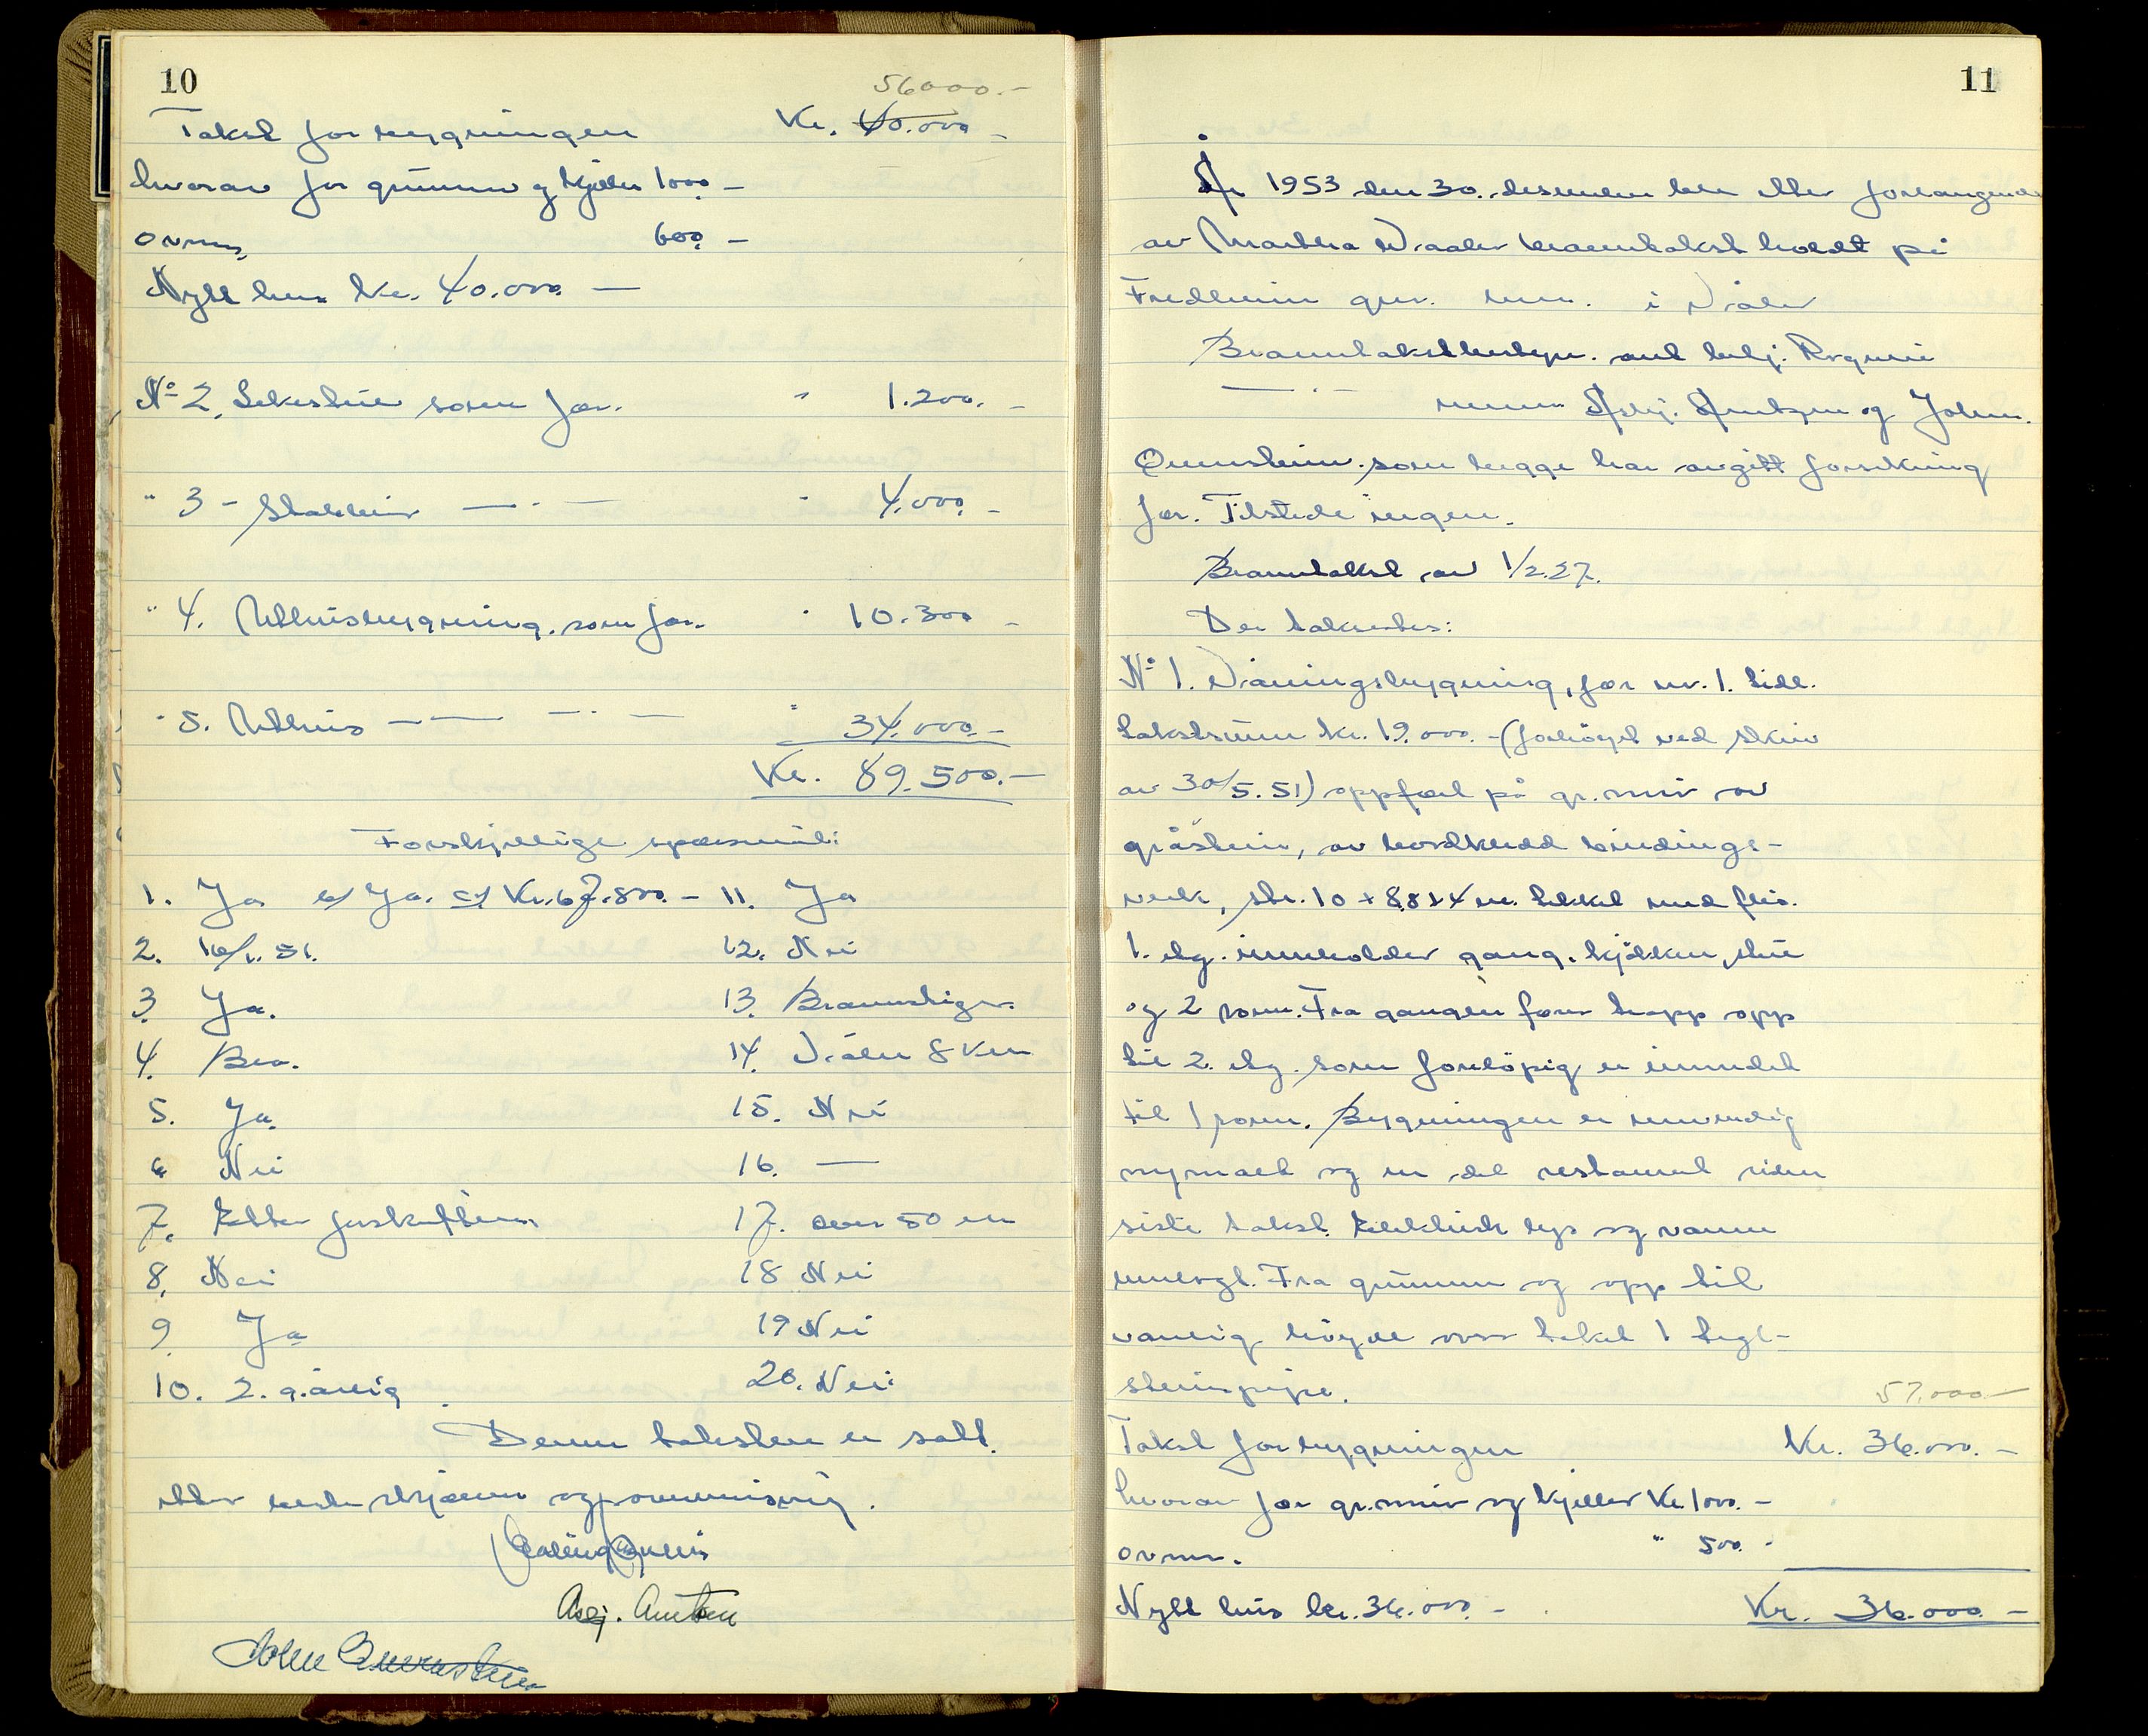 10
56000.-
Takst for bygningen Kr. 40.000 -
hvorav for grunnmur og kjeller 1000 -
ovner 600 -
Nytt hus kr. 40.000 -
No 2. som før. " 1.200. -
" 3 - Stabbur — " — " 4.000. -
" 4. Uthusbygning, som før. " 10.300 -
" 5. Uthus — — " — " 34.000. -
Kr. 89.500.-
Forskjellige spørsmål:
1. Ja b/ Ja. c/ Kr. 67.800. - 11. Ja
2. 51. 12. Nei
3. Ja. 13. Brannstiger.
4. Bra. 14. Våler 8 km
5. Ja. 15. Nei
6 Nei 16. —
7. Etter forskriftene 17. over 50 m
8. Nei 18 Nei
9 Ja 19 Nei
10. 2. g. årlig 20. Nei
Denne taksten er satt
etter beste skjønn og samvittighet.
Asbj. Arntzen
John
11
År 1953 den 30. desember ble etter forlangende
av Martha Vaaler branntakst holdt på
Fredheim gnr. bnr. i Våler
Branntakstbestyr. ved betj.
menn Asbj. Arntzen og John.
som begge har avgitt forsikring
før. Tilstede ingen.
Branntakst av 1/2.27.
Der takseres:
No 1. Våningsbygning, før nr. 1. tidl.
takstsum kr. 19.000. - (forhøyet ved skriv
av 30/5.51) oppført på gr. mur av
gråstein, av bordkledd bindings-
verk, str. 10 x 8,8 x 4 m. tekket med flis.
1. etg. inneholder gang, kjøkken, stue
og 2 rom. Fra gangen fører trapp opp
til 2. etg. som foreløpig er innredet
til 1 rom. Bygningen er innvendig
nymalt og en del restaurert siden
siste takst. Elektrisk lys og vann
innlagt. Fra grunnen og opp til
vanlig høyde over taket 1 tegl-
steinspipe.
57.000 -
Takst for bygningen Kr. 36.000. -
hvorav for gr. mur og kjeller Kr 1000. -
ovner. " 500. -
Nytt hus kr. 36.000. - Kr. 36.000 -